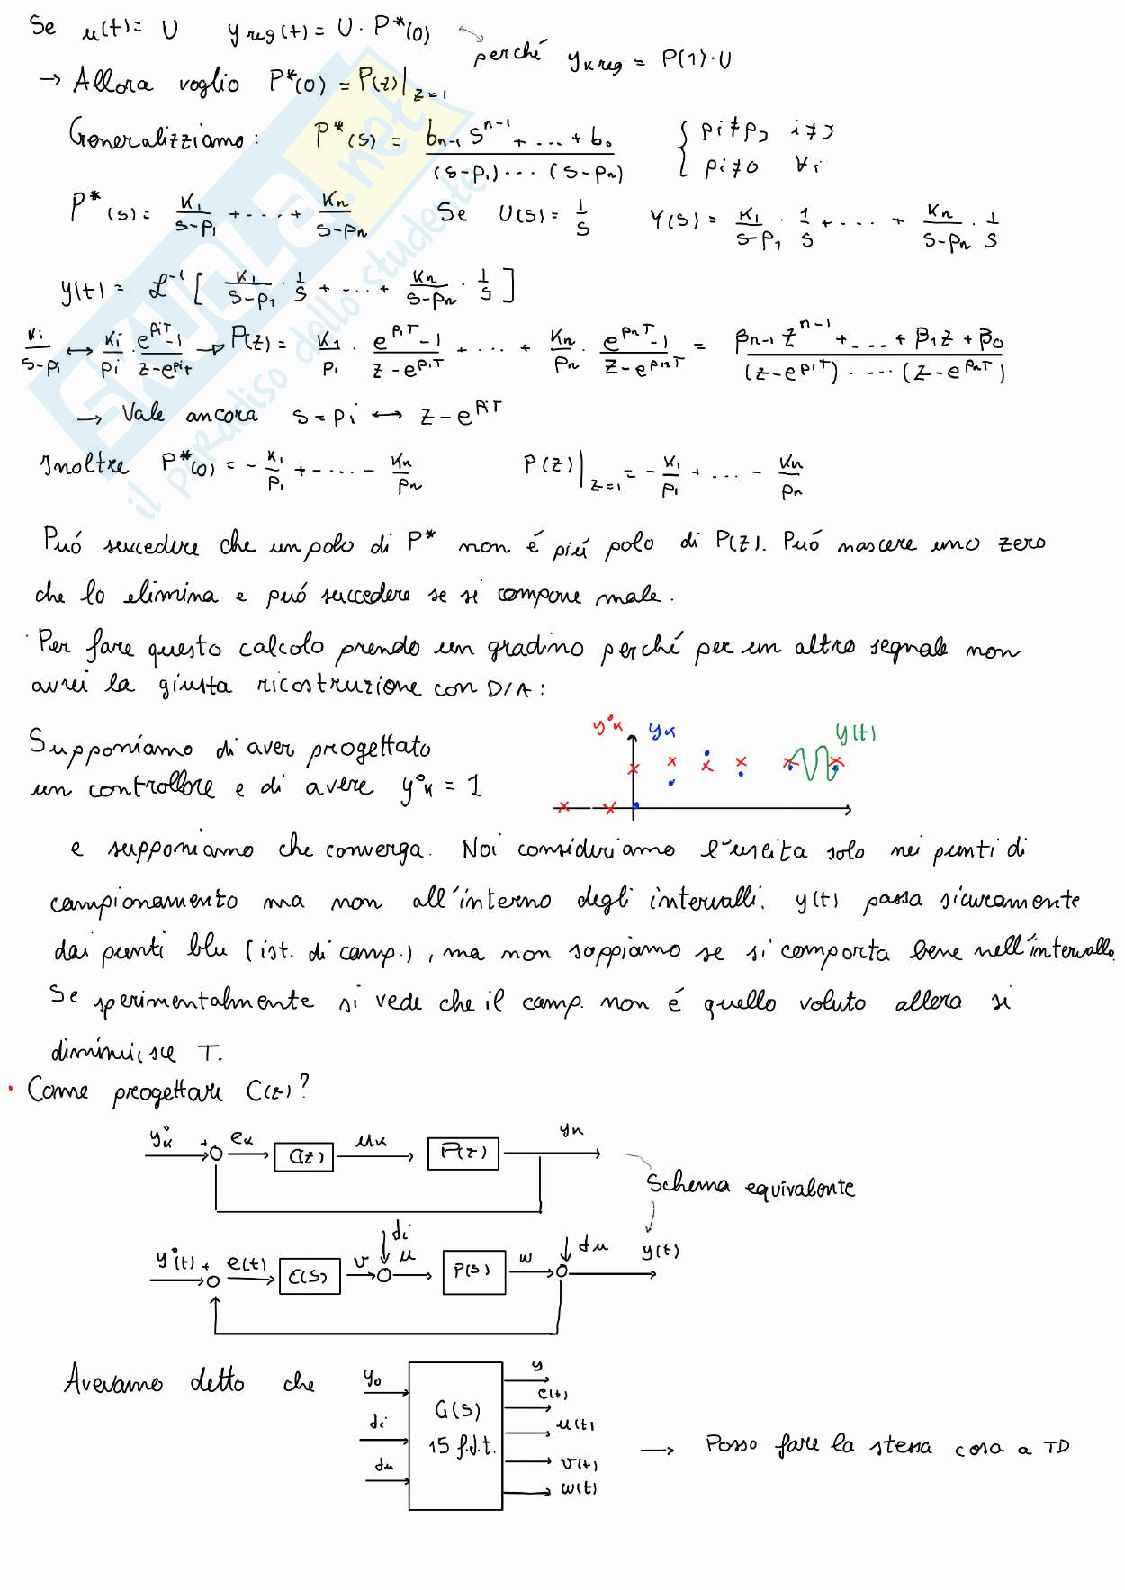 Se u(t)= U   y reg(t) = U · P*(0)   perché y k reg = P(1)·U
→ Allora voglio P*(0) = P(z)|z=1
Generalizziamo: P*(s) = (b n-1 s^n-1 + ... + b0) / ((s-p1)···(s-pn))   { pi≠pj i≠j   pi≠0 ∀i
P*(s) = K1/(s-p1) + ··· + Kn/(s-pn)   Se U(s) = 1/s   Y(s) = K1/(s-p1) · 1/s + ··· + Kn/(s-pn) · 1/s
y(t) = L^-1 [ K1/(s-p1) · 1/s + ... + Kn/(s-pn) · 1/s ]
Ki/(s-pi) ↔ Ki/pi · (e^piT -1)/(z-e^piT) → P(z) = K1/p1 · (e^p1T -1)/(z-e^p1T) + ··· + Kn/pn · (e^pnT -1)/(z-e^pnT) = (βn-1 z^n-1 + ... + β1z + β0) / ((z-e^p1T)·····(z-e^pnT))
→ Vale ancora s=pi ↔ z-e^piT
Inoltre P*(0) = - K1/p1 + -···· - Kn/pn   P(z)|z=1 = - K1/p1 - ... - Kn/pn
Puó succedere che un polo di P* non é piú polo di P(z). Puó nascere uno zero
che lo elimina e puó succedere se si compone male.
Per fare questo calcolo prendo un gradino perché per un altro segnale non
avrei la giusta ricostruzione con D/A:
y°k   yk   y(t)
Supponiamo di aver progettato
un controllore e di avere y°k = 1
e supponiamo che converga. Noi consideriamo l'uscita solo nei punti di
campionamento ma non all'interno degli intervalli. y(t) passa sicuramente
dai punti blu (ist. di camp.), ma non sappiamo se si comporta bene nell'intervallo.
Se sperimentalmente si vede che il camp. non é quello voluto allora si
diminuisce T.
• Come progettare C(z)?
y°k   +   ek   C(z)   uk   P(z)   yk
Schema equivalente
y°(t)   +   e(t)   C(s)   v   di   u   P(s)   w   du   y(t)
Avevamo detto che
yo   di   du
G(s)
15 f.d.t.
y
e(t)
u(t)
v(t)
w(t)
→ Posso fare la stessa cosa a TD
SKUOLA.net
il paradiso dello studente